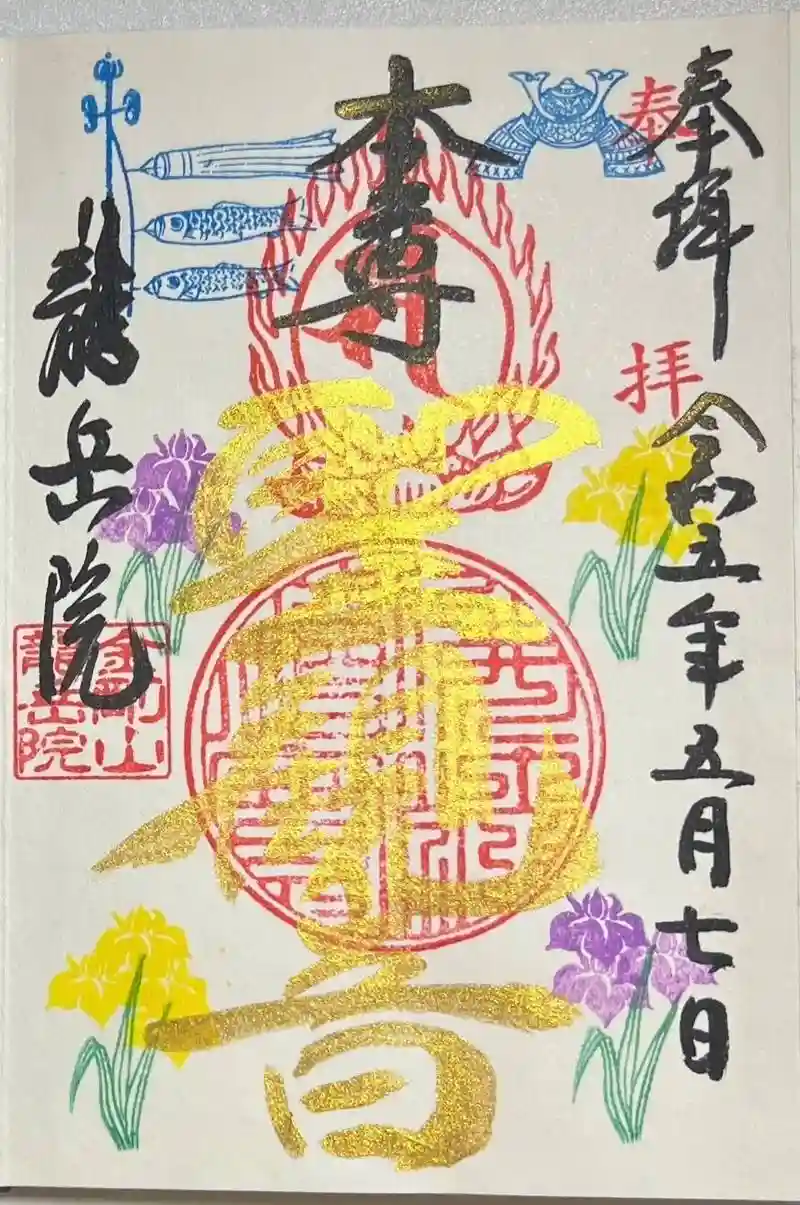 奉拝
奉拝
令和五年五月七日
本尊
聖観音
龍岳院
金剛山
龍岳院